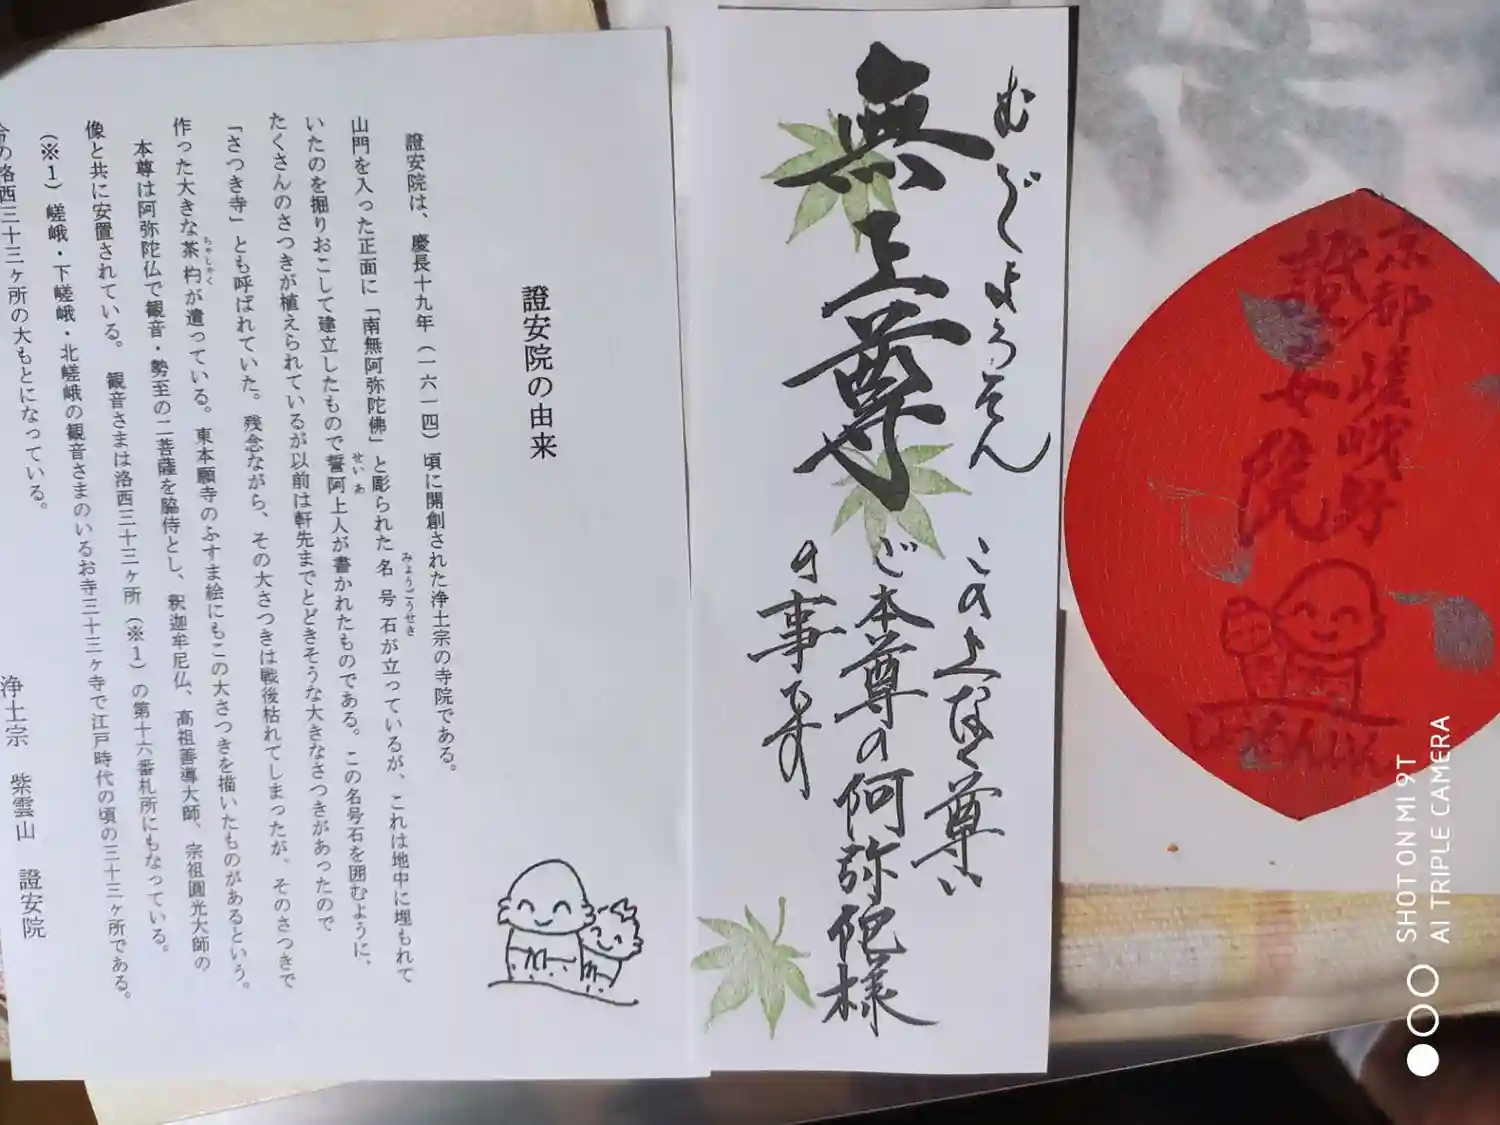 京都 嵯峨野
證安院
むじょうそん
無上尊
この上なく尊い
ご本尊の阿弥陀様
の事です
證安院の由来
證安院は、慶長十九年(一六一四)頃に開創された浄土宗の寺院である。
山門を入った正面に「南無阿弥陀佛」と彫られた名号石が立っているが、これは地中に埋もれて
みょうごうせき
いたのを掘りおこして建立したもので誓阿上人が書かれたものである。この名号石を囲むように、
せいあ
たくさんのさつきが植えられているが以前は軒先までとどきそうな大きなさつきがあったので
「さつき寺」とも呼ばれていた。残念ながら、その大さつきは戦後枯れてしまったが、そのさつきで
作った大きな茶杓が遺っている。東本願寺のふすま絵にもこの大さつきを描いたものがあるという。
ちゃしゃく
本尊は阿弥陀仏で観音・勢至の二菩薩を脇侍とし、釈迦牟尼仏、高祖善導大師、宗祖圓光大師の
像と共に安置されている。観音さまは洛西三十三ヶ所(※1)の第十六番札所にもなっている。
(※1)嵯峨・下嵯峨・北嵯峨の観音さまのいるお寺三十三ヶ寺で江戸時代の頃の三十三ヶ所である。
今の洛西三十三ヶ所の大もとになっている。
浄土宗 紫雲山 證安院
SHOT ON MI 9T
AI TRIPLE CAMERA